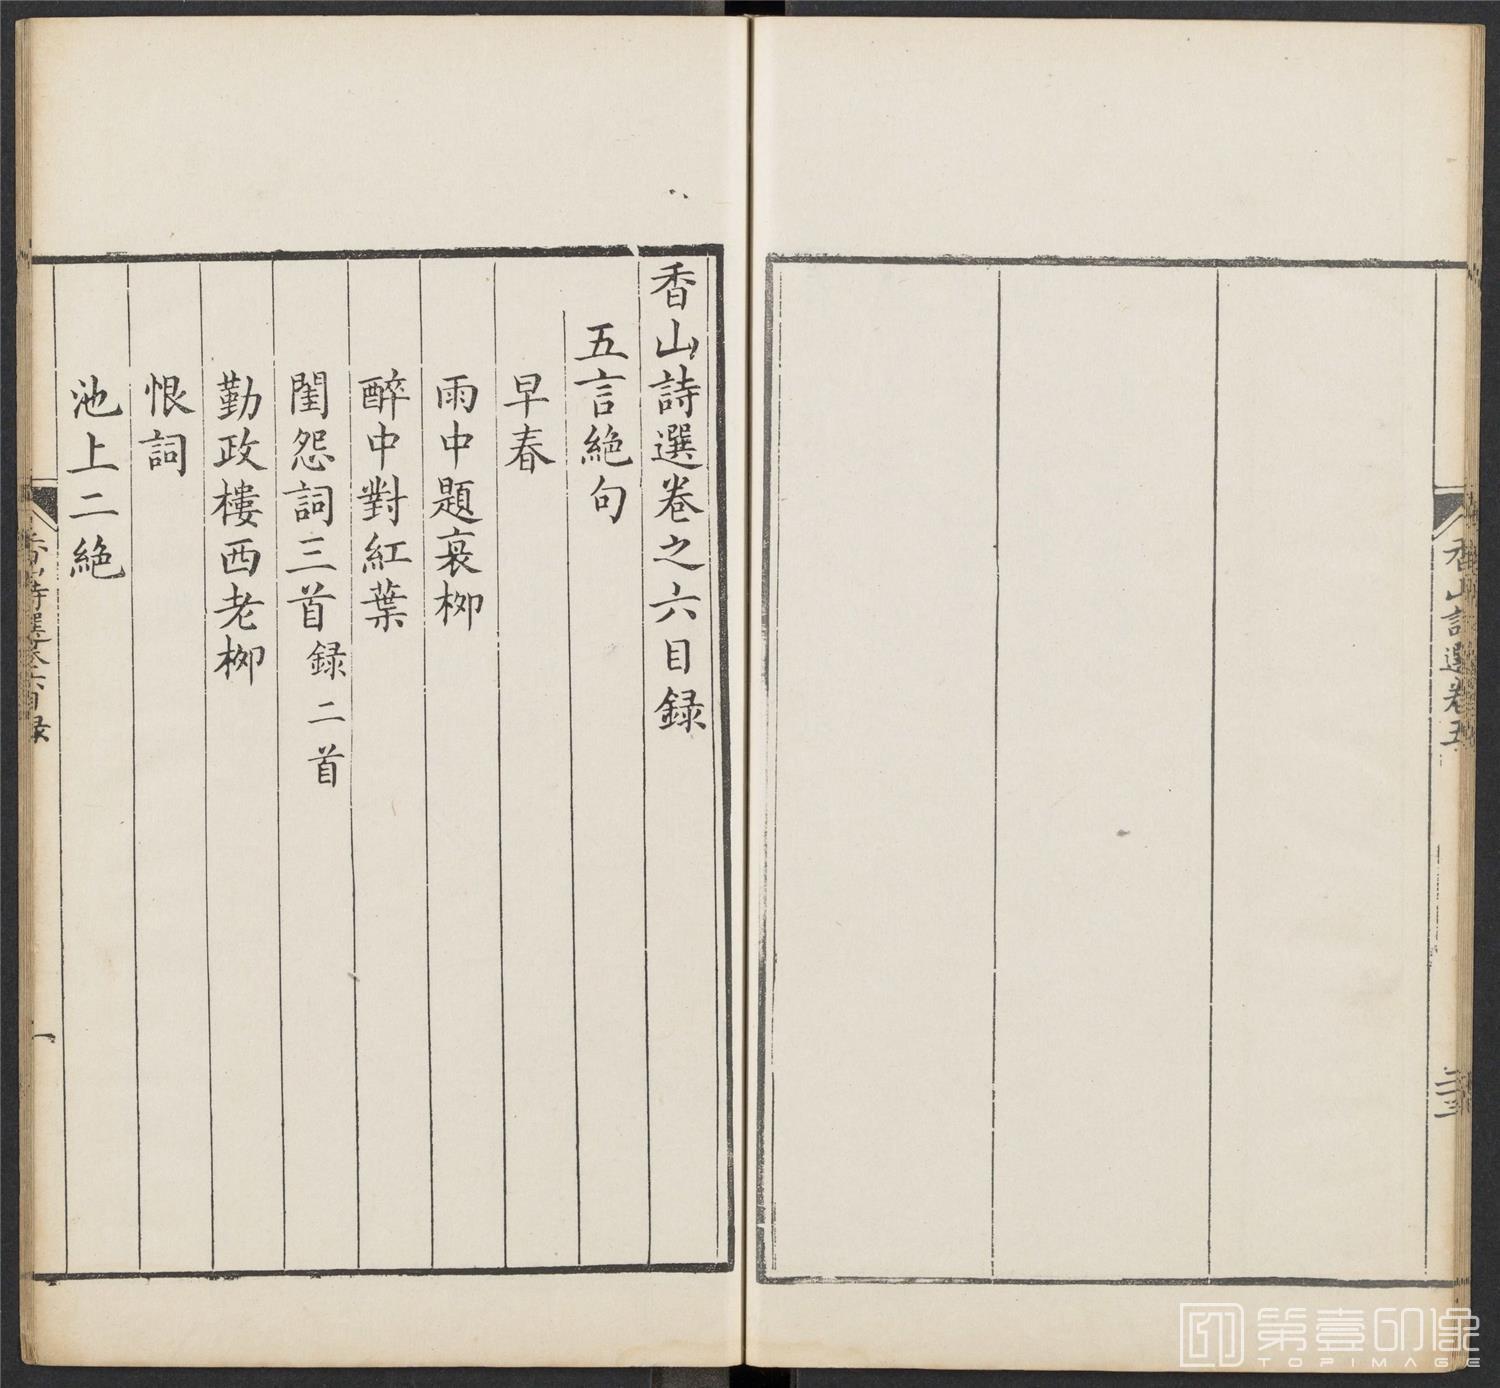 香山詩選卷五
二十二
香山詩選卷之六目録
五言絶句
早春
雨中題衰栁
醉中對紅葉
閨怨詞三首録二首
勤政樓西老栁
恨詞
池上二絶
香山詩選卷六目録
一
第壹印像
TOPIMAGE